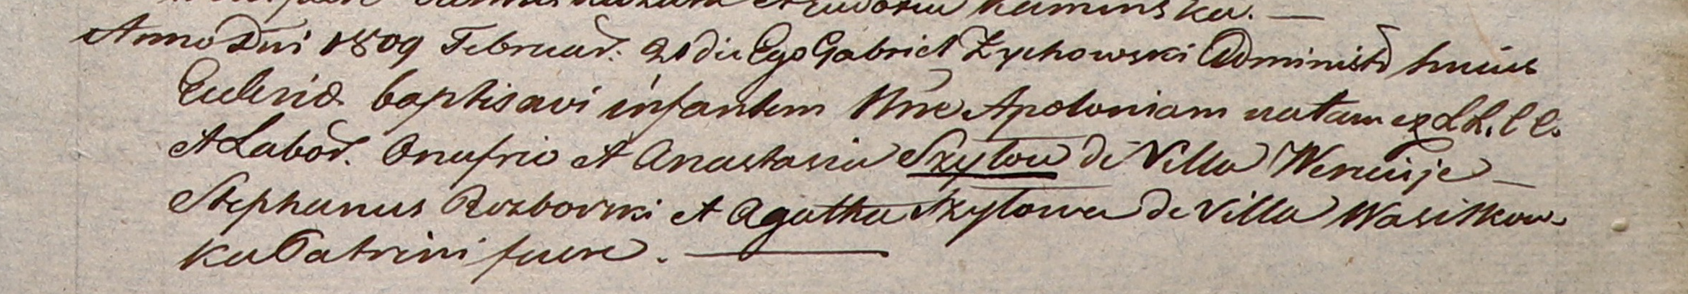 Kaminska. —
Anno Dni 1809 Februar. 21 die Ego Gabriel Zychowski Administr huius
Eccleriae baptisavi infantem Nne Apoloniam natam ex LL. CC.
et Labor. Onufrio et Anastasia Szytow de Villa —
Stephanus Rozborski et Agatha Szytowa de Villa Wasilkow-
ka Patrini fuere. —